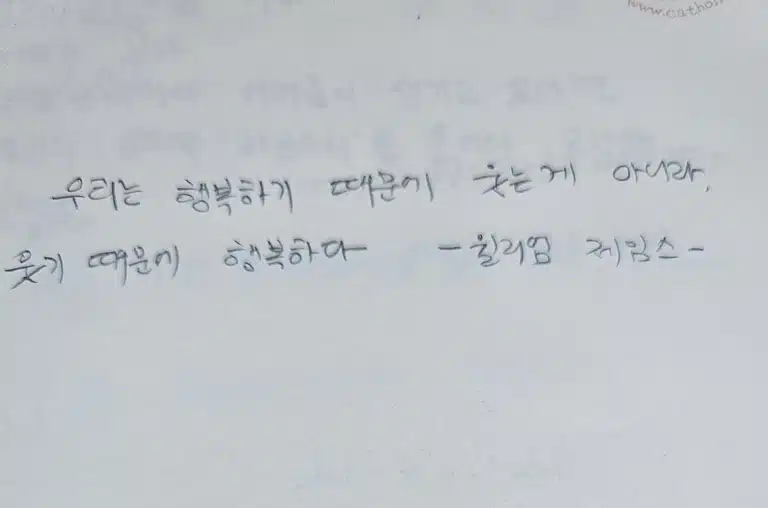 www.catho
우리는 행복하기 때문에 웃는게 아니라,
웃기 때문에 행복하다 -윌리엄 제임스-